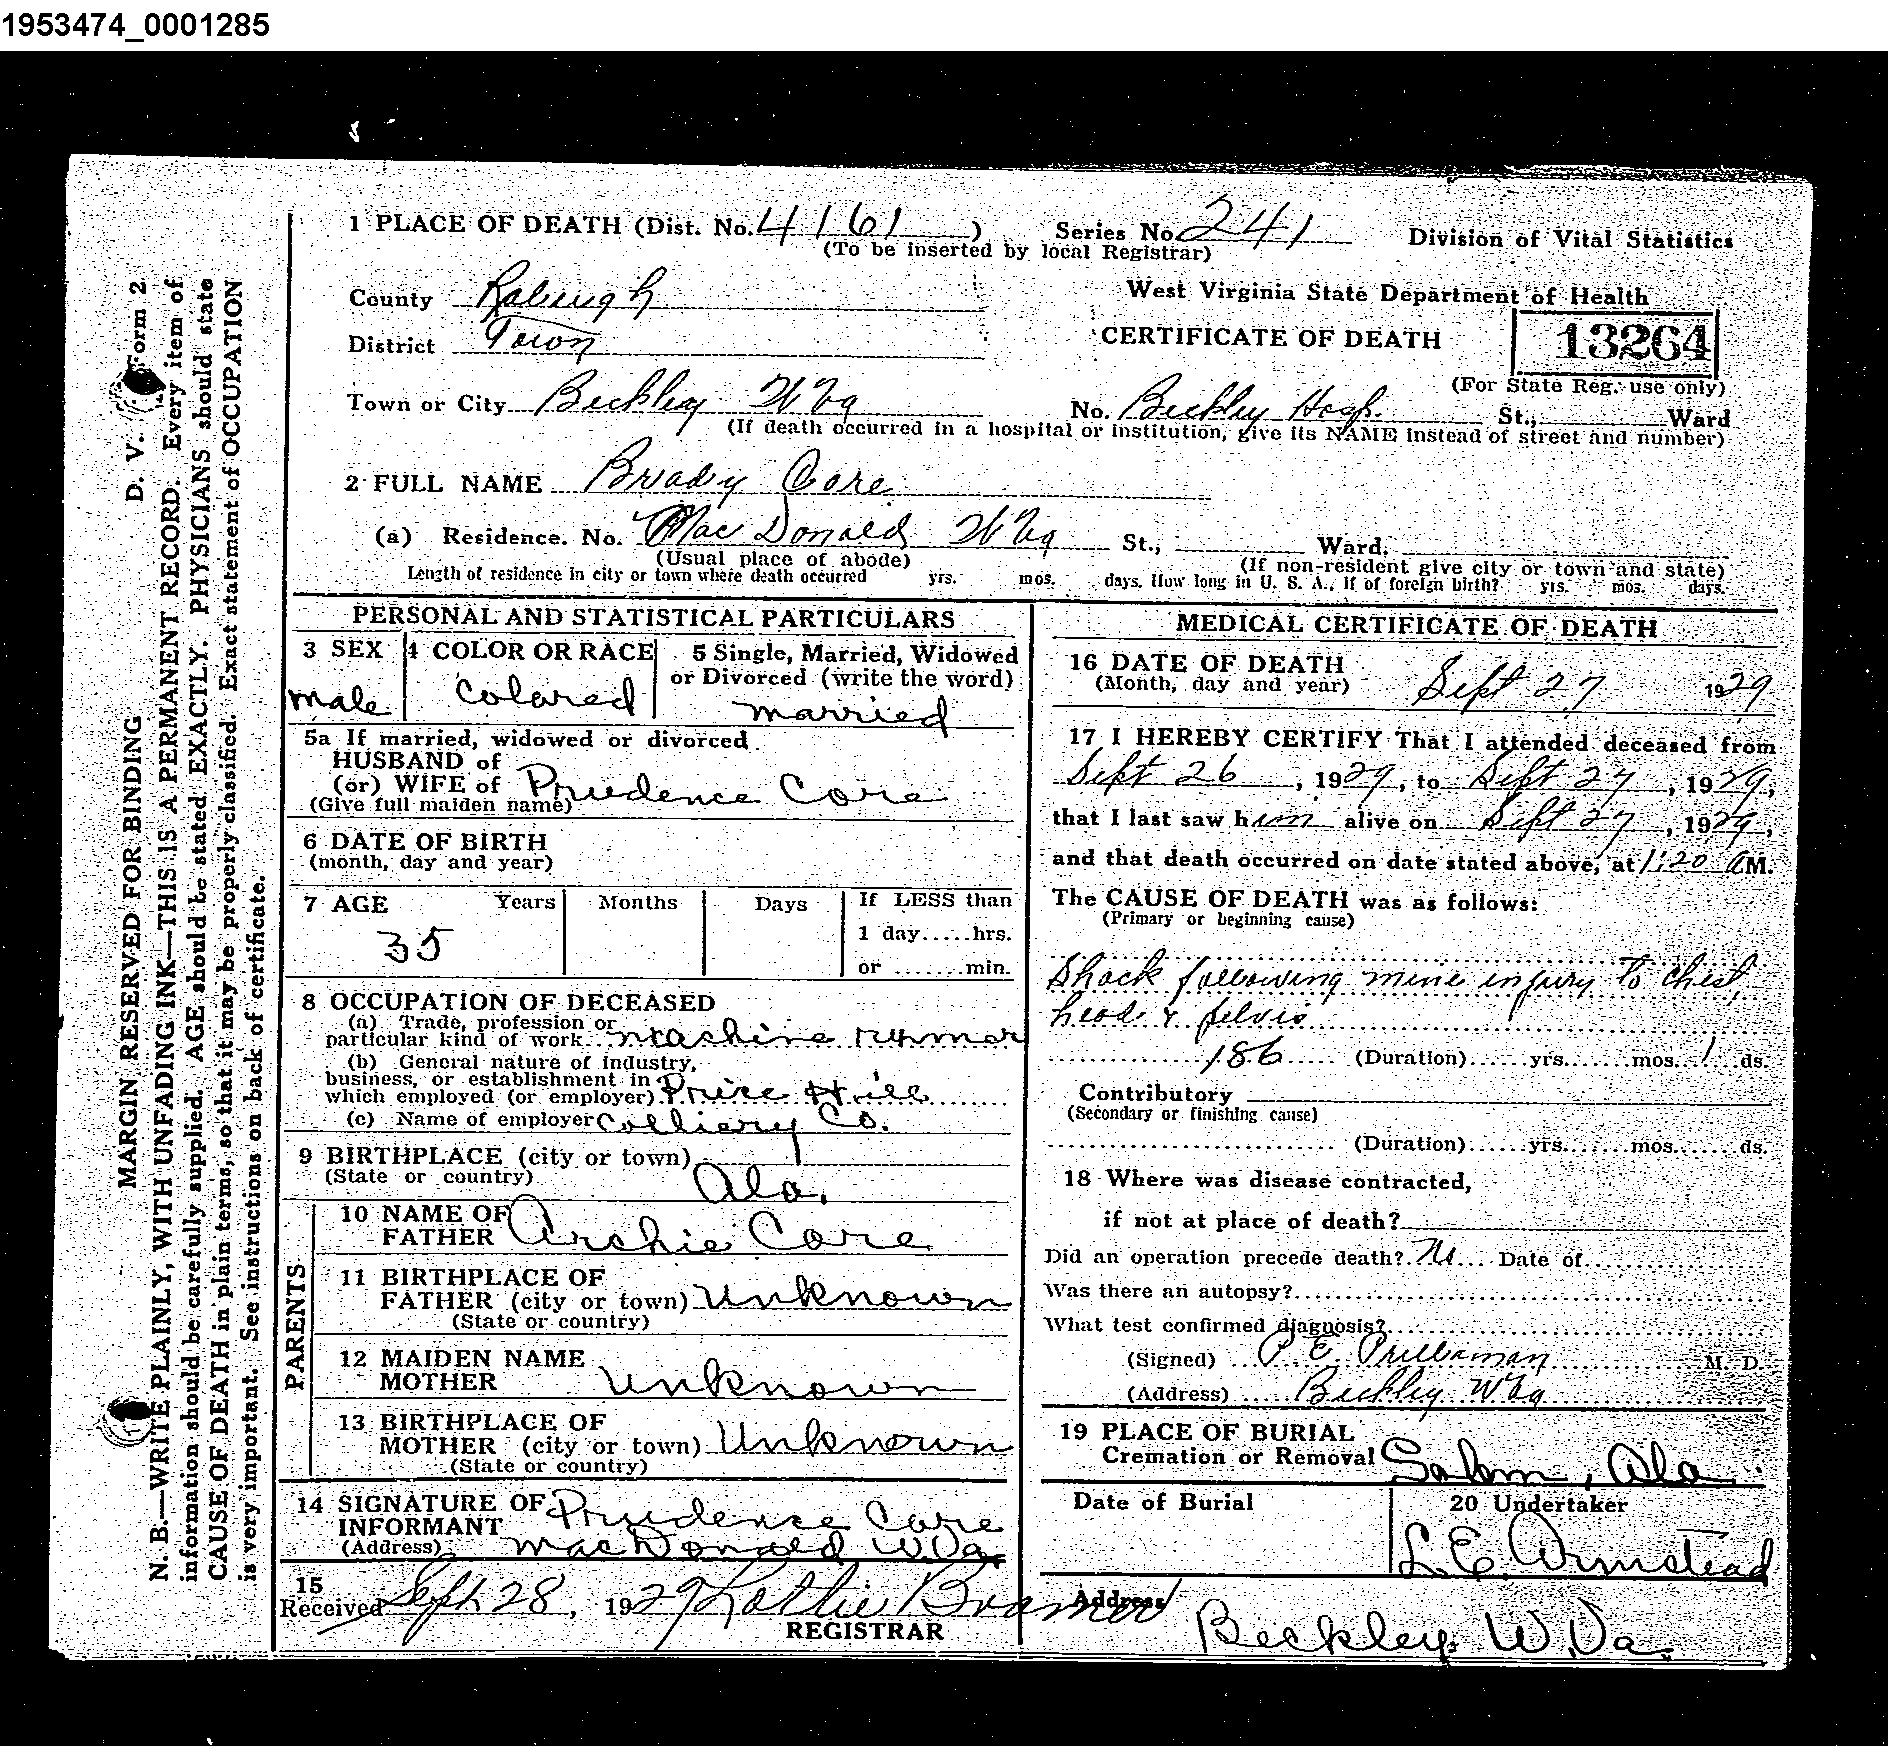 1953474_0001285
1 PLACE OF DEATH (Dist. No. 4161 ) Series No. 241 Division of Vital Statistics
(To be inserted by local Registrar)
County Raleigh West Virginia State Department of Health
District Town CERTIFICATE OF DEATH 13264
(For State Reg. use only)
Town or City Beckley W Va No. Beckley Hosp. St., Ward
(If death occurred in a hospital or institution, give its NAME instead of street and number)
2 FULL NAME Brady Core
(a) Residence. No. Mac Donald W Va St., Ward.
(Usual place of abode) (If non-resident give city or town and state)
Length of residence in city or town where death occurred yrs. mos. days. How long in U. S. A., if of foreign birth? yrs. mos. days.
PERSONAL AND STATISTICAL PARTICULARS
3 SEX 4 COLOR OR RACE 5 Single, Married, Widowed
or Divorced (write the word)
male colored married
5a If married, widowed or divorced
HUSBAND of
(or) WIFE of Prudence Core
(Give full maiden name)
6 DATE OF BIRTH
(month, day and year)
7 AGE Years Months Days If LESS than
35 1 day.....hrs.
or .......min.
8 OCCUPATION OF DECEASED
(a) Trade, profession or
particular kind of work Machine runner
(b) General nature of industry,
business, or establishment in
which employed (or employer) Price Hill
(c) Name of employer Colliery Co.
9 BIRTHPLACE (city or town)
(State or country) Ala.
PARENTS
10 NAME OF
FATHER Archie Core
11 BIRTHPLACE OF
FATHER (city or town) Unknown
(State or country)
12 MAIDEN NAME
MOTHER Unknown
13 BIRTHPLACE OF
MOTHER (city or town) Unknown
(State or country)
14 SIGNATURE OF
INFORMANT Prudence Core
(Address) MacDonald W.Va.
15
Received Sept. 28, 1929
REGISTRAR
MEDICAL CERTIFICATE OF DEATH
16 DATE OF DEATH
(Month, day and year) Sept 27 1929
17 I HEREBY CERTIFY That I attended deceased from
Sept 26, 1929, to Sept 27, 1929,
that I last saw him alive on Sept 27, 1929,
and that death occurred on date stated above, at 1:20 a M.
The CAUSE OF DEATH was as follows:
(Primary or beginning cause)
Shock following mine injury to chest,
head & pelvis
186 (Duration)......yrs.......mos. 1 ds.
Contributory
(Secondary or finishing cause)
(Duration)......yrs.......mos.......ds.
18 Where was disease contracted,
if not at place of death?
Did an operation precede death? No Date of
Was there an autopsy?
What test confirmed diagnosis?
(Signed) P E Prillaman M. D.
(Address) Beckley W Va
19 PLACE OF BURIAL
Cremation or Removal Salem, Ala
Date of Burial 20 Undertaker
L. E. Armstead
Address
Beckley W.Va.
MARGIN RESERVED FOR BINDING D. V. Form 2
N. B.—WRITE PLAINLY, WITH UNFADING INK—THIS IS A PERMANENT RECORD. Every item of
information should be carefully supplied. AGE should be stated EXACTLY. PHYSICIANS should state
CAUSE OF DEATH in plain terms, so that it may be properly classified. Exact statement of OCCUPATION
is very important. See instructions on back of certificate.